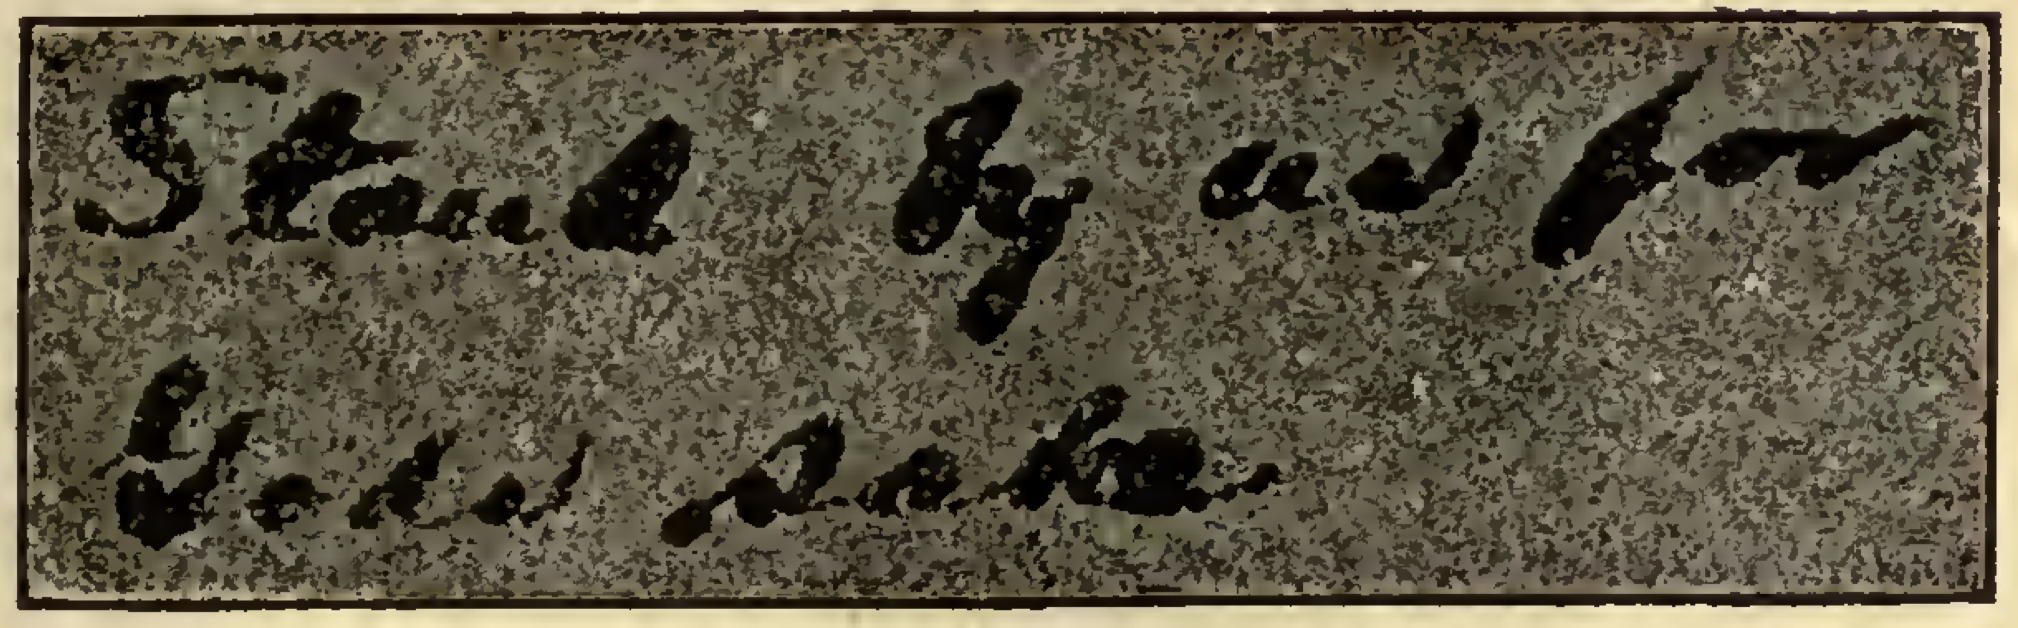 Stand by us for
Gods sake